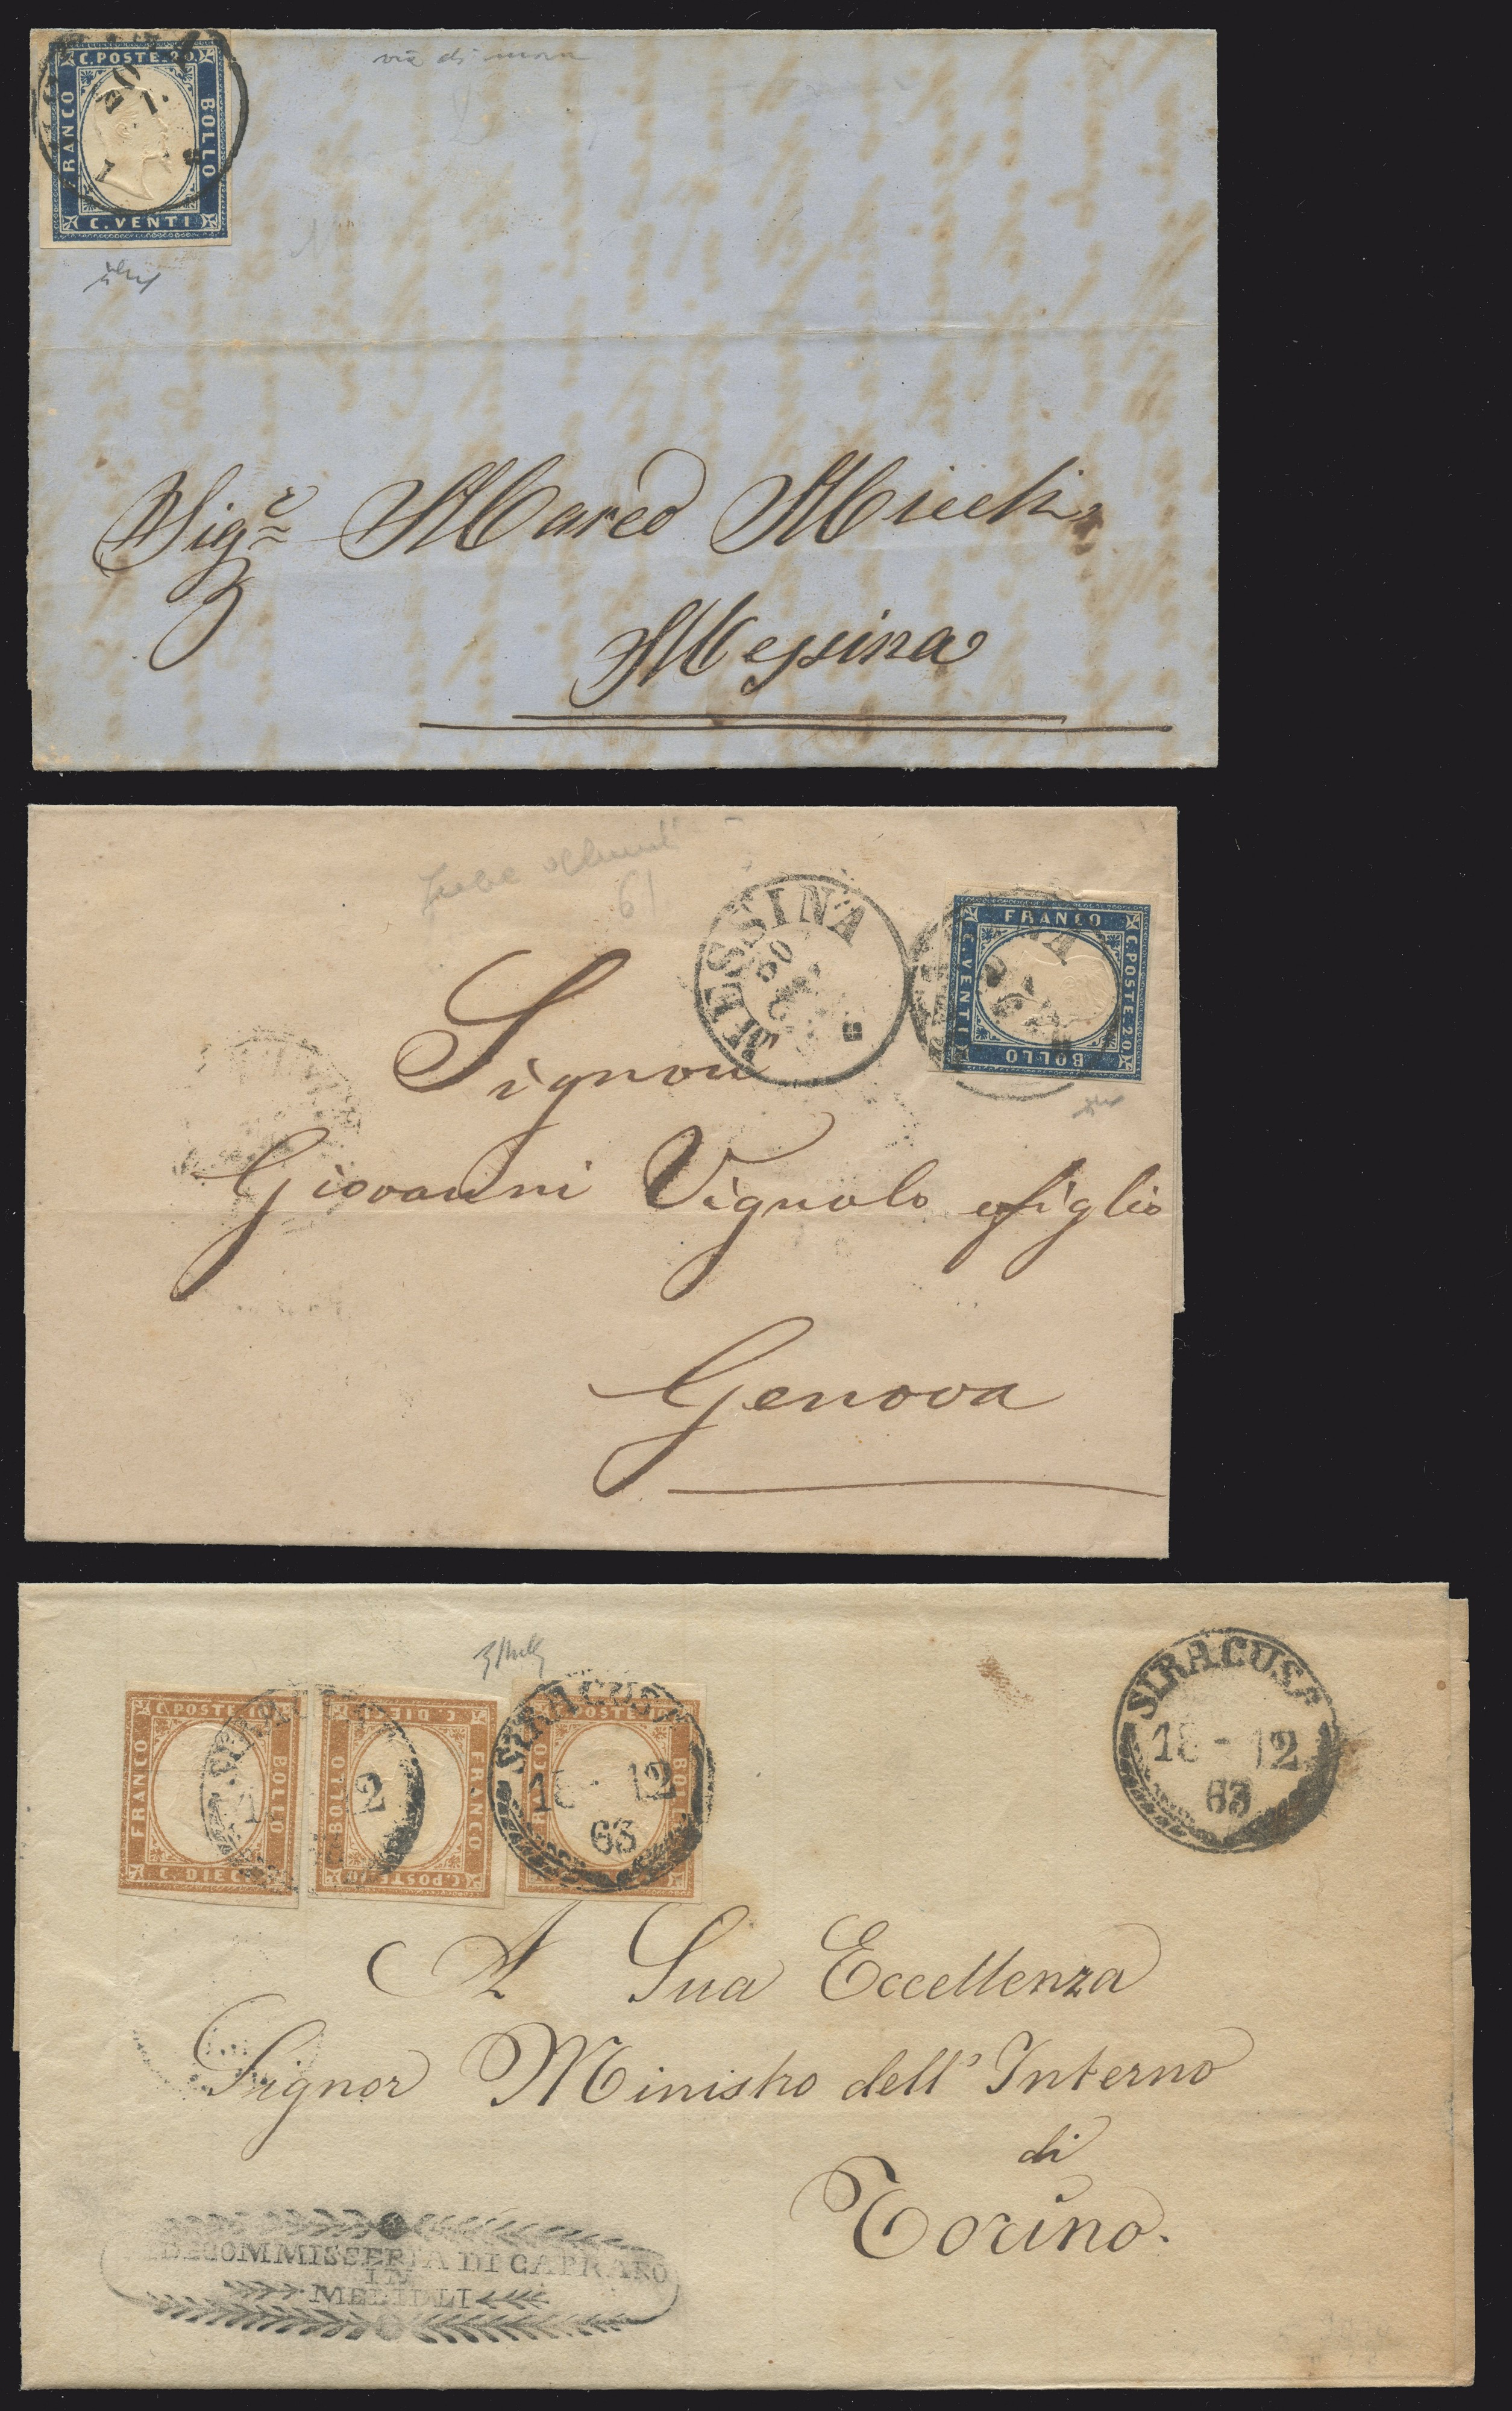 C. POSTE. 20.
FRANCO
BOLLO
C. VENTI
20
via di mare
Sig.r Marco
Messina
61
MESSINA
FRANCO
C. POSTE. 20
C. VENTI
BOLLO
Signor
Giovanni Vignolo e figlio
Genova
C. POSTE. 10
FRANCO
BOLLO
C. DIECI
C. DIECI
BOLLO
FRANCO
C. POSTE. 10
2
C. POSTE. 10
SIRACUSA
12
63
SIRACUSA
12
63
A Sua Eccellenza
Signor Ministro dell'Interno
di
Torino.
DECOMMISSERIA DI CAPRARO
IN
MELILLI